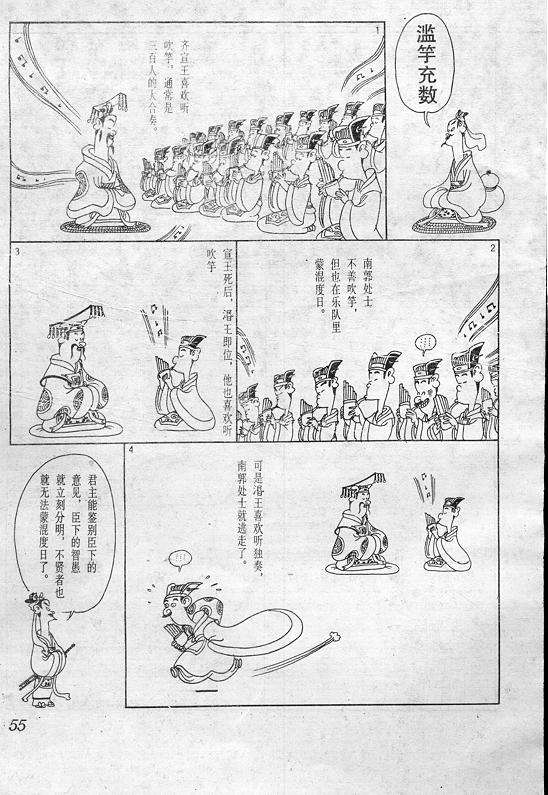 滥竽充数
1
齐宣王喜欢听
吹竽,通常是
三百人的大合奏。
2
南郭处士
不善吹竽,
但也在乐队里
蒙混度日。
3
宣王死后,湣王即位,他也喜欢听
吹竽
4
可是湣王喜欢听独奏,
南郭处士就逃走了。
君主能鉴别臣下的
意见,臣下的智愚
就立刻分明,不贤者也
就无法蒙混度日了。
55